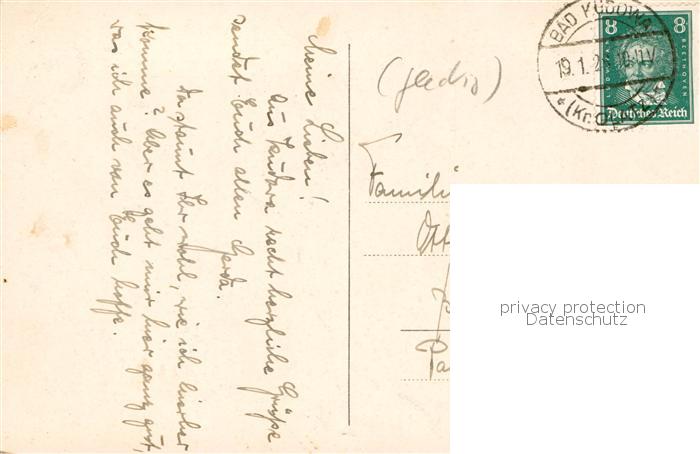 Meine Lieben!
Aus Kudowa recht herzliche Grüße
sendet Euch allen Gerda.
Da staunt Ihr wohl, wie ich hierher
komme? Aber es geht mir hier ganz gut,
was ich auch von Euch hoffe.
Famili
Ott
BAD KUDOWA
19.1.2
8 8
LUDWIG VAN BEETHOVEN
Deutsches Reich
privacy protection
Datenschutz